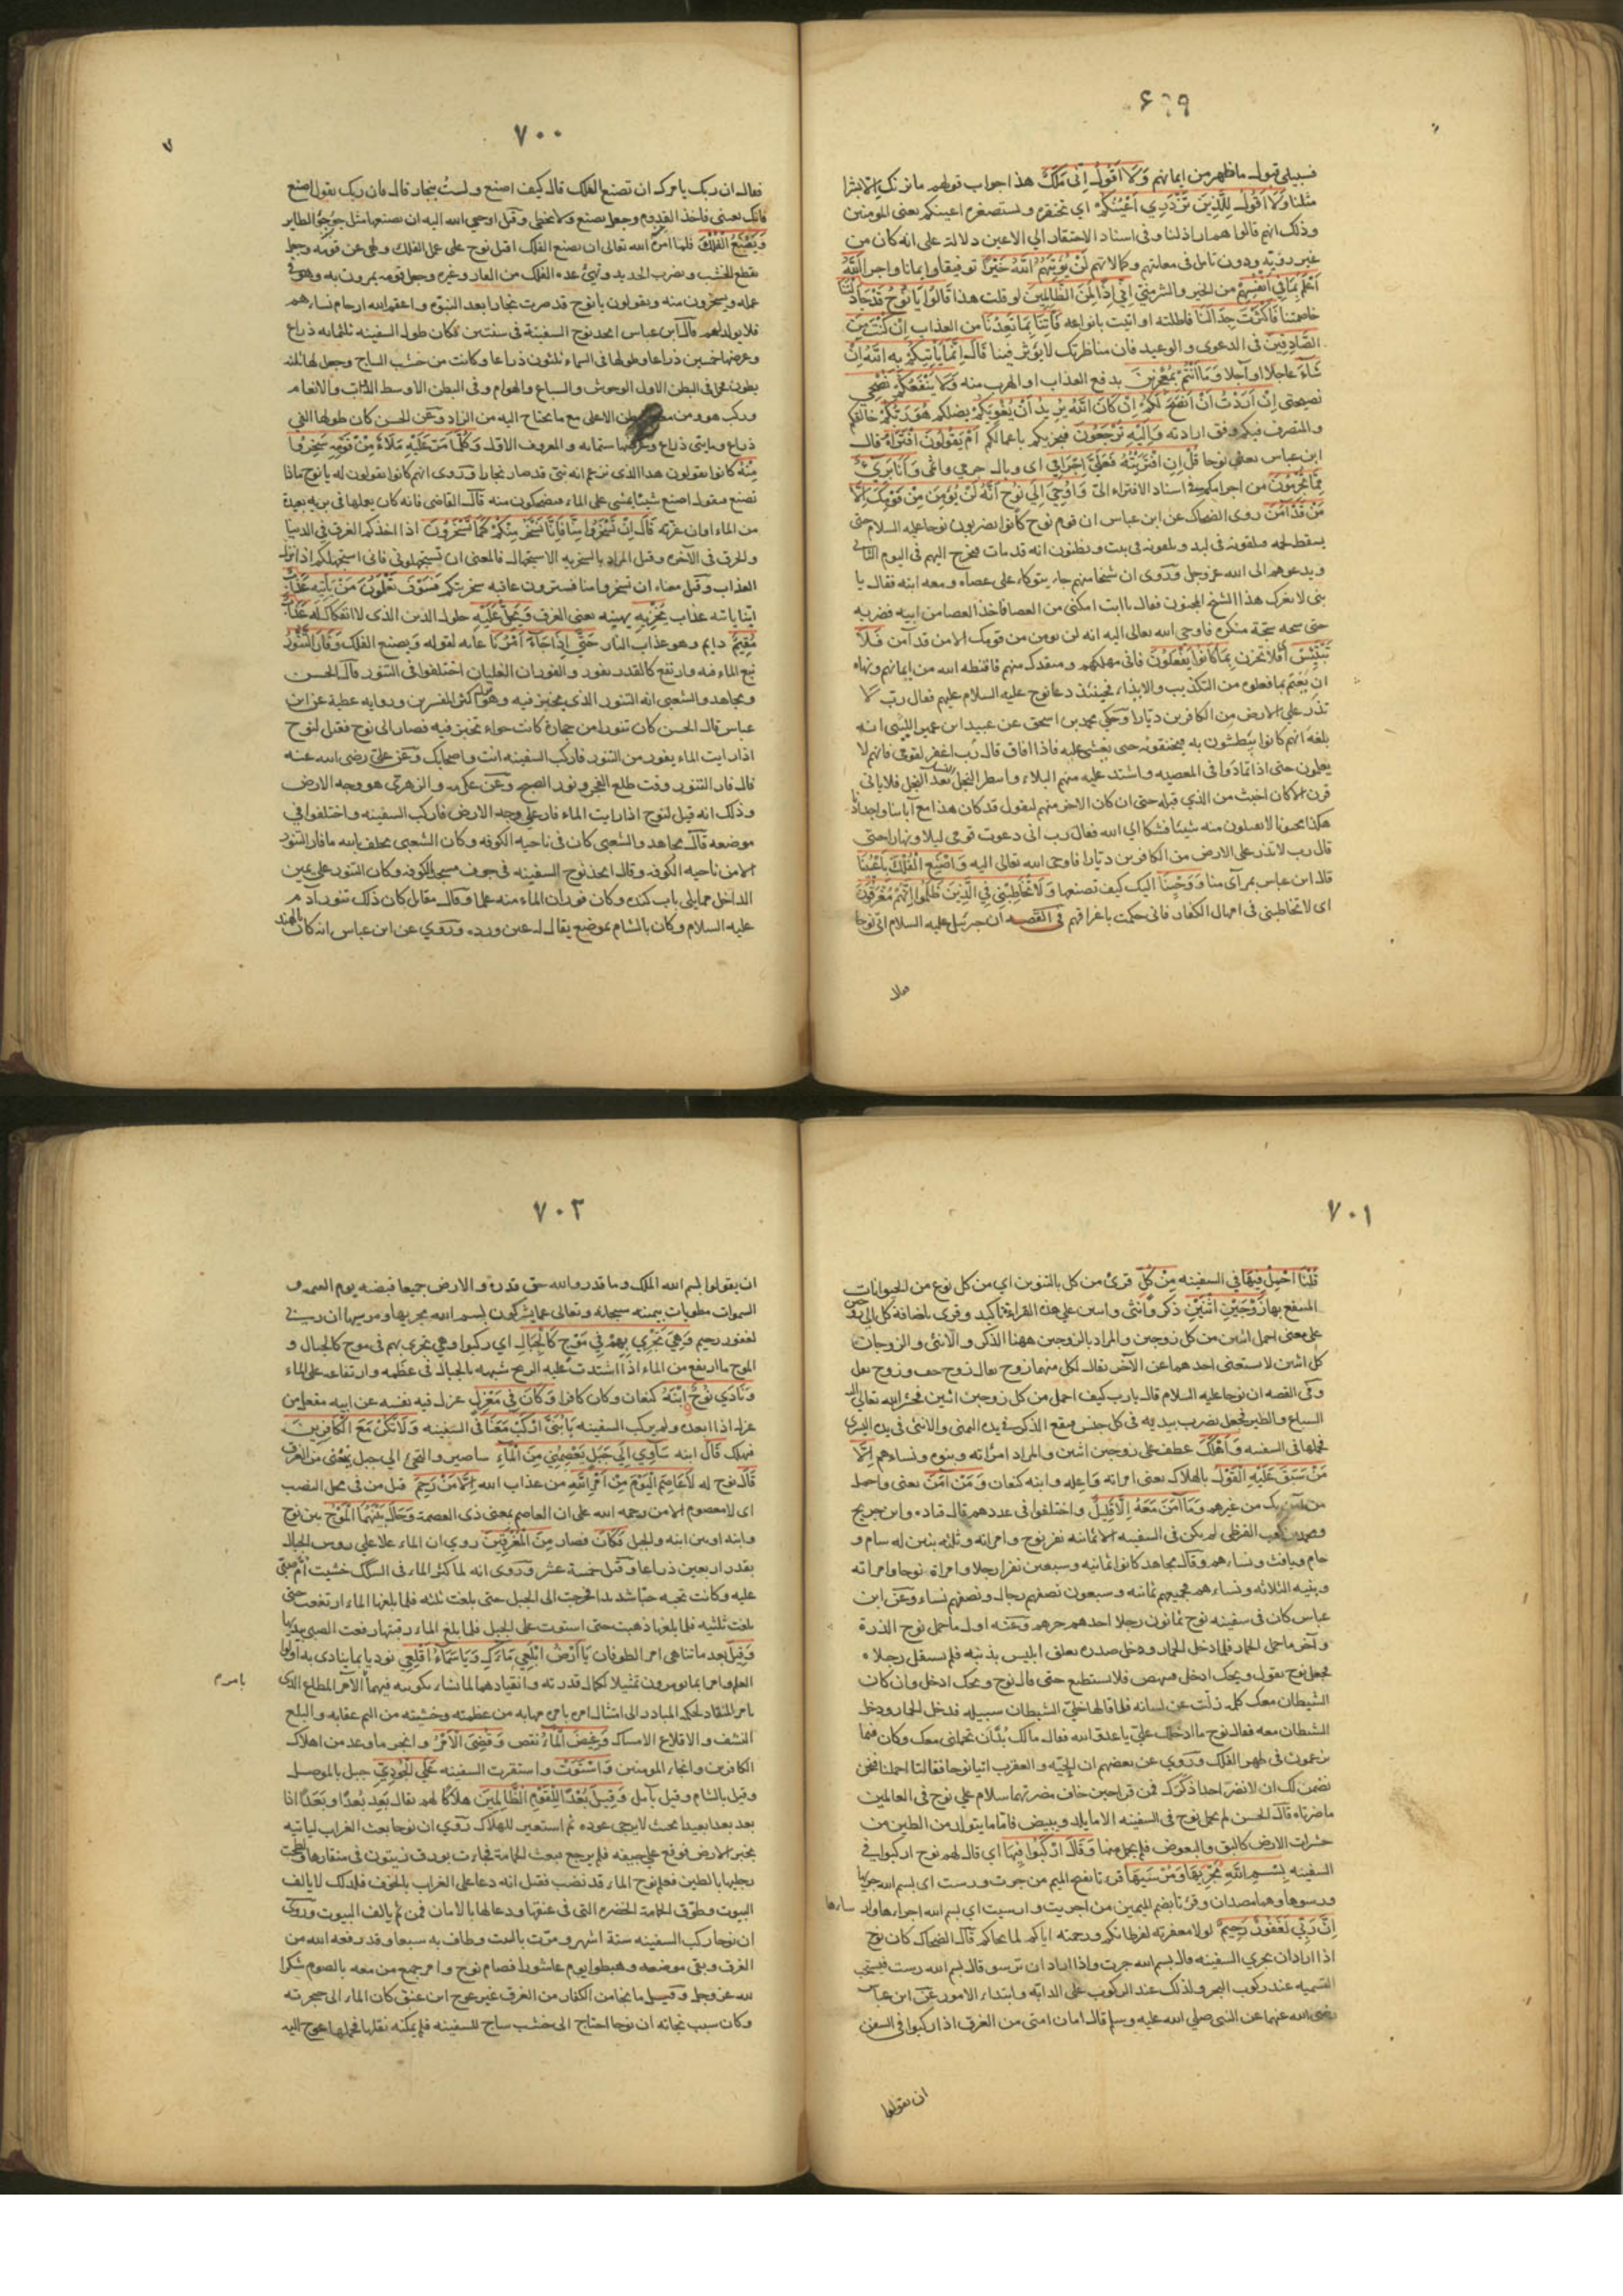 ۶۹۹
فسبيلى قبول ما ظهر من ايمانهم وَلَا اَقُولُ اِنِّى مَلَكٌ هذا جواب قولهم ما نريك الا بشرا
مثلنا وَلَا اَقُولُ لِلَّذِينَ تَزْدَرِي اَعْيُنُكُمْ اي تحتقره وتستصغره اعينكم يعنى المومنين
وذلك انهم قالوا هم اراذلنا وفى اسناد الاحتقار الي الاعين دلالة على انه كان من
غير روية ودون تامل فى معانيهم وكمالاتهم لَنْ يُؤْتِيَهُمُ اللَّهُ خَيْرًا توفيقا وايمانا واجرا اَللَّهُ
اَعْلَمُ بِمَا فِى اَنْفُسِهِمْ من الخير والشر منى اِنِّى اِذًا لَمِنَ الظَّالِمِينَ لو قلت هذا قَالُوا يَا نُوحُ قَدْ جَادَلْتَنَا
خاصمتنا فَاَكْثَرْتَ جِدَالَنَا فاطلته او اتيت بانواعه فَأْتِنَا بِمَا تَعِدُنَا من العذاب اِنْ كُنْتَ مِنَ
الصَّادِقِينَ فى الدعوى والوعيد فان مناظرتك لا يؤثر فينا قَالَ اِنَّمَا يَأْتِيكُمْ بِهِ اللَّهُ اِنْ
شَاءَ عاجلا او آجلا وَمَا اَنْتُمْ بِمُعْجِزِينَ بدفع العذاب او الهرب منه وَلَا يَنْفَعُكُمْ نُصْحِي
نصيحتى اِنْ اَرَدْتُ اَنْ اَنْصَحَ لَكُمْ اِنْ كَانَ اللَّهُ يُرِيدُ اَنْ يُغْوِيَكُمْ يضلكم هُوَ رَبُّكُمْ خالقكم
والمتصرف فيكم وفق ارادته وَاِلَيْهِ تُرْجَعُونَ فيجزيكم باعمالكم اَمْ يَقُولُونَ افْتَرَاهُ قال
ابن عباس يعنى نوحا قُلْ اِنِ افْتَرَيْتُهُ فَعَلَيَّ اِجْرَامِي اى وبال جرمي واثمى وَاَنَا بَرِيءٌ
مِمَّا تُجْرِمُونَ من اجرامكم فى اسناد الافتراء الىّ وَاُوحِيَ اِلَى نُوحٍ اَنَّهُ لَنْ يُؤْمِنَ مِنْ قَوْمِكَ اِلَّا
مَنْ قَدْ آمَنَ روى الضحاك عن ابن عباس ان قوم نوح كانوا يضربون نوحا عليه السلام حتى
يسقط فيلقونه فى لبد ويلقونه فى بيت ويظنون انه قد مات فيخرج اليهم فى اليوم الثانى
ويدعوهم الى الله عز وجل وروى ان شيخا منهم جاء يتوكاء على عصاه ومعه ابنه فقال يا
بنى لا يغرك هذا الشيخ المجنون فقال يا ابت امكنى من العصا فاخذ العصا من ابيه فضربه
حتى شجه شجة منكرة فاوحى الله تعالى اليه انه لن يومن من قومك الا من قد آمن فَلَا
تَبْتَئِسْ اى فلا تحزن بِمَا كَانُوا يَفْعَلُونَ فانى مهلكهم ومنقذك منهم فاقنطه الله من ايمانهم ونهاه
ان يغتم بما فعلوه من التكذيب والايذاء فحينئذ دعا نوح عليه السلام عليهم فقال رب لا
تذر على الارض من الكافرين ديارا وحكى محمد بن اسحق عن عبيد ابن عمير الليثى انه
بلغه انهم كانوا يبطشون به فيخنقونه حتى يغشى عليه فاذا افاق قال رب اغفر لقومى فانهم لا
يعلمون حتى اذا تمادوا فى المعصيه واشتد عليه منهم البلاء وانتظر النجل بعد النجل فلا ياتى
قرن الا كان اخبث من الذي قبله حتى ان كان الاخر منهم ليقول قد كان هذا مع آبائنا واجدادنا
هكذا مجنونا لا يقبلون منه شيئا فشكا الي الله فقال رب انى دعوت قومى ليلا ونهارا حتى
قال رب لا تذر على الارض من الكافرين ديارا فاوحى الله تعالى اليه وَاصْنَعِ الْفُلْكَ بِاَعْيُنِنَا
قال ابن عباس بمرآى منا وَوَحْيِنَا اليك كيف تصنعها وَلَا تُخَاطِبْنِي فِي الَّذِينَ ظَلَمُوا اِنَّهُمْ مُغْرَقُونَ
اى لا تخاطبنى فى امهال الكفار فانى حكمت باغراقهم فى القصه ان جبرئيل عليه السلام اتى نوحا
۷۰۰
فقال ان ربك يامرك ان تصنع الفلك قال كيف اصنع ولست بنجار قال فان ربك يقول اصنع
فانك بعينى فاخذ القدوم وجعل يصنع ولا يخطى وقيل اوحي الله اليه ان يصنعها مثل جؤجؤ الطاير
وَيَصْنَعُ الْفُلْكَ فلما امره الله تعالى ان يصنع الفلك اقبل نوح على عمل الفلك ولهى عن قومه وجعل
يقطع الخشب ويضرب الحديد ويهيئ عدة الفلك من القار وغيره وجعل قومه يمرون به وهو فى
عمله ويسخرون منه ويقولون يا نوح قد صرت نجارا بعد النبوة واعقم الله ارحام نساءهم
فلا يولد لهم قال ابن عباس اتخذ نوح السفينة فى سنتين وكان طول السفينه ثلثمايه ذراع
وعرضها خمسين ذراعا وطولها فى السماء ثلثون ذراعا وكانت من خشب الساج وجعل لها ثلثه
بطون فحمل فى البطن الاول الوحوش والسباع والهوام وفى البطن الاوسط الدواب والانعام
وركب هو ومن معه البطن الاعلى مع ما يحتاج اليه من الزاد وعن الحسن كان طولها الفي
ذراع ومايتى ذراع وعرضها ستمايه والمعروف الاول وَكُلَّمَا مَرَّ عَلَيْهِ مَلَاٌ مِنْ قَوْمِهِ سَخِرُوا
مِنْهُ كانوا يقولون هذا الذى يزعم انه نبى قد صار نجارا وروى انهم كانوا يقولون له يا نوح ماذا
تصنع فيقول اصنع بيتا يمشى على الماء فيضحكون منه قال القاضى فانه كان يعملها فى برية بعيدة
من الماء اوان عزته قَالَ اِنْ تَسْخَرُوا مِنَّا فَاِنَّا نَسْخَرُ مِنْكُمْ كَمَا تَسْخَرُونَ اذا اخذكم الغرق فى الدنيا
والحرق فى الآخره وقيل المراد بالسخريه الاستجهال فالمعنى ان تستجهلونى فانى استجهلكم اذا نزل
العذاب وقيل معناه ان تسخروا منا فسترون عاقبه سخريتكم فَسَوْفَ تَعْلَمُونَ مَنْ يَأْتِيهِ عَذَابٌ
اينا ياتيه عذاب يُخْزِيهِ يهينه يعنى الغرق وَيَحِلُّ عَلَيْهِ حلول الدين الذى لا انفكاك له عَذَابٌ
مُقِيمٌ دايم وهو عذاب النار حَتَّى اِذَا جَاءَ اَمْرُنَا غايه لقوله ويصنع الفلك وَفَارَ التَّنُّورُ
نبع الماء فيه وارتفع كالقدر يفور والفوران الغليان اختلفوا فى التنور قال الحسن
ومجاهد والشعبى انه التنور الذي يخبز فيه وهو قول اكثر المفسرين وروايه عطية عن ابن
عباس قال الحسن كان تنورا من حجارة كانت حواء تخبز فيه فصار الى نوح فقيل لنوح
اذا رايت الماء يفور من التنور فاركب السفينه انت واصحابك وعن على رضى الله عنه
قال فار التنور وقت طلع الفجر ونور الصبح وعن عكرمه والزهرى هو وجه الارض
وذلك انه قيل لنوح اذا رايت الماء فار علي وجه الارض فاركب السفينه واختلفوا في
موضعه قال مجاهد والشعبى كان فى ناحيه الكوفه وكان الشعبى يحلف بالله ما فار التنور
الا من ناحيه الكوفه وقال اتخذ نوح السفينه فى جوف مسجد الكوفه وكان التنور على يمين
الداخل مما يلى باب كنده وكان فوران الماء منه علما وقال مقاتل كان ذلك تنور آدم
عليه السلام وكان بالشام بموضع يقال له عين ورده وروي عن ابن عباس انه كان بالهند
۷۰۱
قُلْنَا احْمِلْ فِيهَا فى السفينه مِنْ كُلٍّ قرئ من كل بالتنوين اى من كل نوع من الحيوانات
المنتفع بها زَوْجَيْنِ اثْنَيْنِ ذكر وانثى واثنين علي هذه القراءة تاكيد وقرئ باضافة كل الي زوجين
على معنى احمل اثنين من كل زوجين والمراد بالزوجين ههنا الذكر والانثى والزوجات
كل اثنين لا يستغنى احدهما عن الآخر يقال لكل منهما زوج يقال زوج خف وزوج نعل
وفى القصه ان نوحا عليه السلام قال يا رب كيف احمل من كل زوجين اثنين فحشر الله تعالى اليه
السباع والطير فجعل يضرب بيديه فى كل جنس فيقع الذكر فى يده اليمنى والانثى فى يده اليسرى
فيحملها فى السفينه وَاَهْلَكَ عطف على زوجين اثنين والمراد امراته وبنوه ونساءهم اِلَّا
مَنْ سَبَقَ عَلَيْهِ الْقَوْلُ بالهلاك يعنى امراته واعله وابنه كنعان وَمَنْ آمَنَ يعنى واحمل
من آمن بك من غيرهم وَمَا آمَنَ مَعَهُ اِلَّا قَلِيلٌ واختلفوا فى عددهم قال قتاده وابن جريج
ومحمد بن كعب القرظى لم يكن فى السفينه الا ثمانيه نفر نوح وامراته وثلثه بنين له سام و
حام ويافث ونساءهم وقال مجاهد كانوا ثمانيه وسبعين نفرا رجلا وامراة نوحا وامراته
وبنيه الثلاثه ونساءهم فجميعهم ثمانيه وسبعون نصفهم رجال ونصفهم نساء وعن ابن
عباس كان فى سفينه نوح ثمانون رجلا احدهم جرهم وعنه اول ما حمل نوح الذرة
وآخر ما حمل الحمار فلما دخل الحمار ودخل صدره تعلق ابليس بذنبه فلم تستقل رجلاه
فجعل نوح يقول ويحك ادخل فينهض فلا يستطيع حتى قال نوح ويحك ادخل وان كان
الشيطان معك كلمه زلت عن لسانه فلما قالها خلي الشيطان سبيله فدخل الحمار ودخل
الشيطان معه فقال نوح ما ادخلك علي يا عدو الله فقال مالك بد ان تحملنى معك وكان فيما
يزعمون فى ظهر الفلك وروي عن بعضهم ان الحية والعقرب اتيا نوحا فقالتا احملنا فنحن
نضمن لك ان لا نضر احدا ذكرك فمن قرا حين خاف مضرتهما سلام علي نوح فى العالمين
ما ضرتاه قال الحسن لم يحمل نوح فى السفينه الا ما يلد ويبيض فاما ما يتولد من الطين من
حشرات الارض كالبق والبعوض فلم يحمل منها وَقَالَ ارْكَبُوا فِيهَا اي قال لهم نوح اركبوا في
السفينه بِسْمِ اللَّهِ مَجْرَيهَا وَمُرْسَيهَا قرئا بفتح الميم من جرت ورست اى بسم الله جريها
ورسوها وهما مصدران وقرئا بضم الميمين من اجريت وارسيت اي بسم الله اجراءها وارساءها
اِنَّ رَبِّي لَغَفُورٌ رَحِيمٌ لولا مغفرته لفرطاتكم ورحمته اياكم لما نجاكم قال الضحاك كان نوح
اذا اراد ان يجري السفينه قال بسم الله جرت واذا اراد ان ترسو قال بسم الله رست فيستحب
التسميه عند ركوب البحر وكذلك عند الركوب على الدابه وابتداء الامور عن ابن عباس
رضى الله عنهما عن النبى صلي الله عليه وسلم قال امان امتى من الغرق اذا ركبوا فى السفن
ان يقولوا
۷۰۲
ان يقولوا بسم الله الملك وما قدروا الله حق قدره والارض جميعا قبضته يوم القيمه و
السموات مطويات بيمينه سبحانه وتعالى عما يشركون بسم الله مجريها ومرسيها ان ربي
لغفور رحيم وَهِيَ تَجْرِي بِهِمْ فِي مَوْجٍ كَالْجِبَالِ اي ركبوا وهي تجري بهم فى موج كالجبال و
الموج ما ارتفع من الماء اذا اشتدت عليه الريح شبهه بالجبال فى عظمه وارتفاعه على الماء
وَنَادَى نُوحٌ ابْنَهُ كنعان وكان كافرا وَكَانَ فِي مَعْزِلٍ عزل فيه نفسه عن ابيه مفعل من
عزله اذا ابعده ولم يركب السفينه يَا بُنَيَّ ارْكَبْ مَعَنَا فى السفينه وَلَا تَكُنْ مَعَ الْكَافِرِينَ
فتهلك قَالَ ابنه سَآوِي اِلَى جَبَلٍ يَعْصِمُنِي مِنَ الْمَاءِ ساصير والتجئ الي جبل يمنعنى من الغرق
قَالَ نوح له لَا عَاصِمَ الْيَوْمَ مِنْ اَمْرِ اللَّهِ من عذاب الله اِلَّا مَنْ رَحِمَ قيل من فى محل النصب
اى لا معصوم الا من رحمه الله على ان العاصم بمعنى ذى العصمة وَحَالَ بَيْنَهُمَا الْمَوْجُ بين نوح
وابنه او بين ابنه والجبل فَكَانَ فصار مِنَ الْمُغْرَقِينَ روي ان الماء علا علي روس الجبال
بقدر اربعين ذراعا وقيل خمسة عشر وروى انه لما كثر الماء فى السكك خشيت ام صبى
عليه وكانت تحبه حبا شديدا فخرجت الى الجبل حتى بلغت ثلثه فلما بلغها الماء ارتفعت حتى
بلغت ثلثيه فلما بلغها ذهبت حتى استوت على الجبل فلما بلغ الماء رقبتها رفعت الصبى بيديها
وَقِيلَ بعد ما تناهى امر الطوفان يَا اَرْضُ ابْلَعِي مَاءَكِ وَيَا سَمَاءُ اَقْلِعِي نوديا بما ينادى به اولوا
العلم وامرا بما يومرون تمثيلا لكمال قدرته وانقيادهما لما يشاء تكوينه فيهما الآمر المطاع الذى
يامر المنقاد لحكمه المبادر الى امتثال امره مهابة من عظمته وخشيته من اليم عقابه والبلع
النشف والاقلاع الامساك وَغِيضَ الْمَاءُ نقص وَقُضِيَ الْاَمْرُ وانجز ما وعد من اهلاك
الكافرين وانجاء المومنين وَاسْتَوَتْ واستقرت السفينه عَلَى الْجُودِيِّ جبل بالموصل
وقيل بالشام وقيل بآمل وَقِيلَ بُعْدًا لِلْقَوْمِ الظَّالِمِينَ هلاكا لهم يقال بَعِدَ بُعْدًا وبَعَدًا اذا
بعد بعدا بعيدا بحيث لا يرجى عوده ثم استعير للهلاك روي ان نوحا بعث الغراب لياتيه
بخبر الارض فوقع علي جيفه فلم يرجع فبعث الحمامة فجاءت بورق زيتون فى منقارها ولطخت
رجليها بالطين فعلم نوح الماء قد نضب فقيل انه دعا على الغراب بالخوف فلذلك لا يالف
البيوت وطوق الحمامة الخضره التى فى عنقها ودعا لها بالامان فمن ثم يالف البيوت وروى
ان نوحا ركب السفينه ستة اشهر ومرت بالبيت وطاف به سبعا وقد رفعه الله من
الغرق وبقى موضعه وهبطوا يوم عاشورا فصام نوح وامر جميع من معه بالصوم شكرا
لله عز وجل وقيل ما نجا من الكفار من الغرق غير عوج ابن عنق كان الماء الى حجزته
وكان سبب نجاته ان نوحا احتاج الى خشب ساج للسفينه فلم يمكنه نقلها فحملها عوج اليه